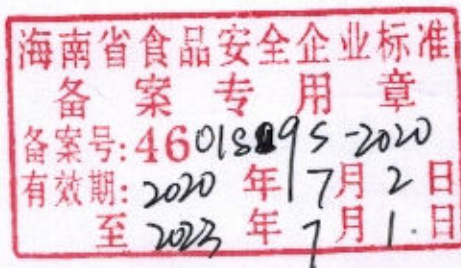 海南省食品安全企业标准
备案专用章
备案号:46 0182095-2020
有效期:2020年7月2日
至2023年7月1日